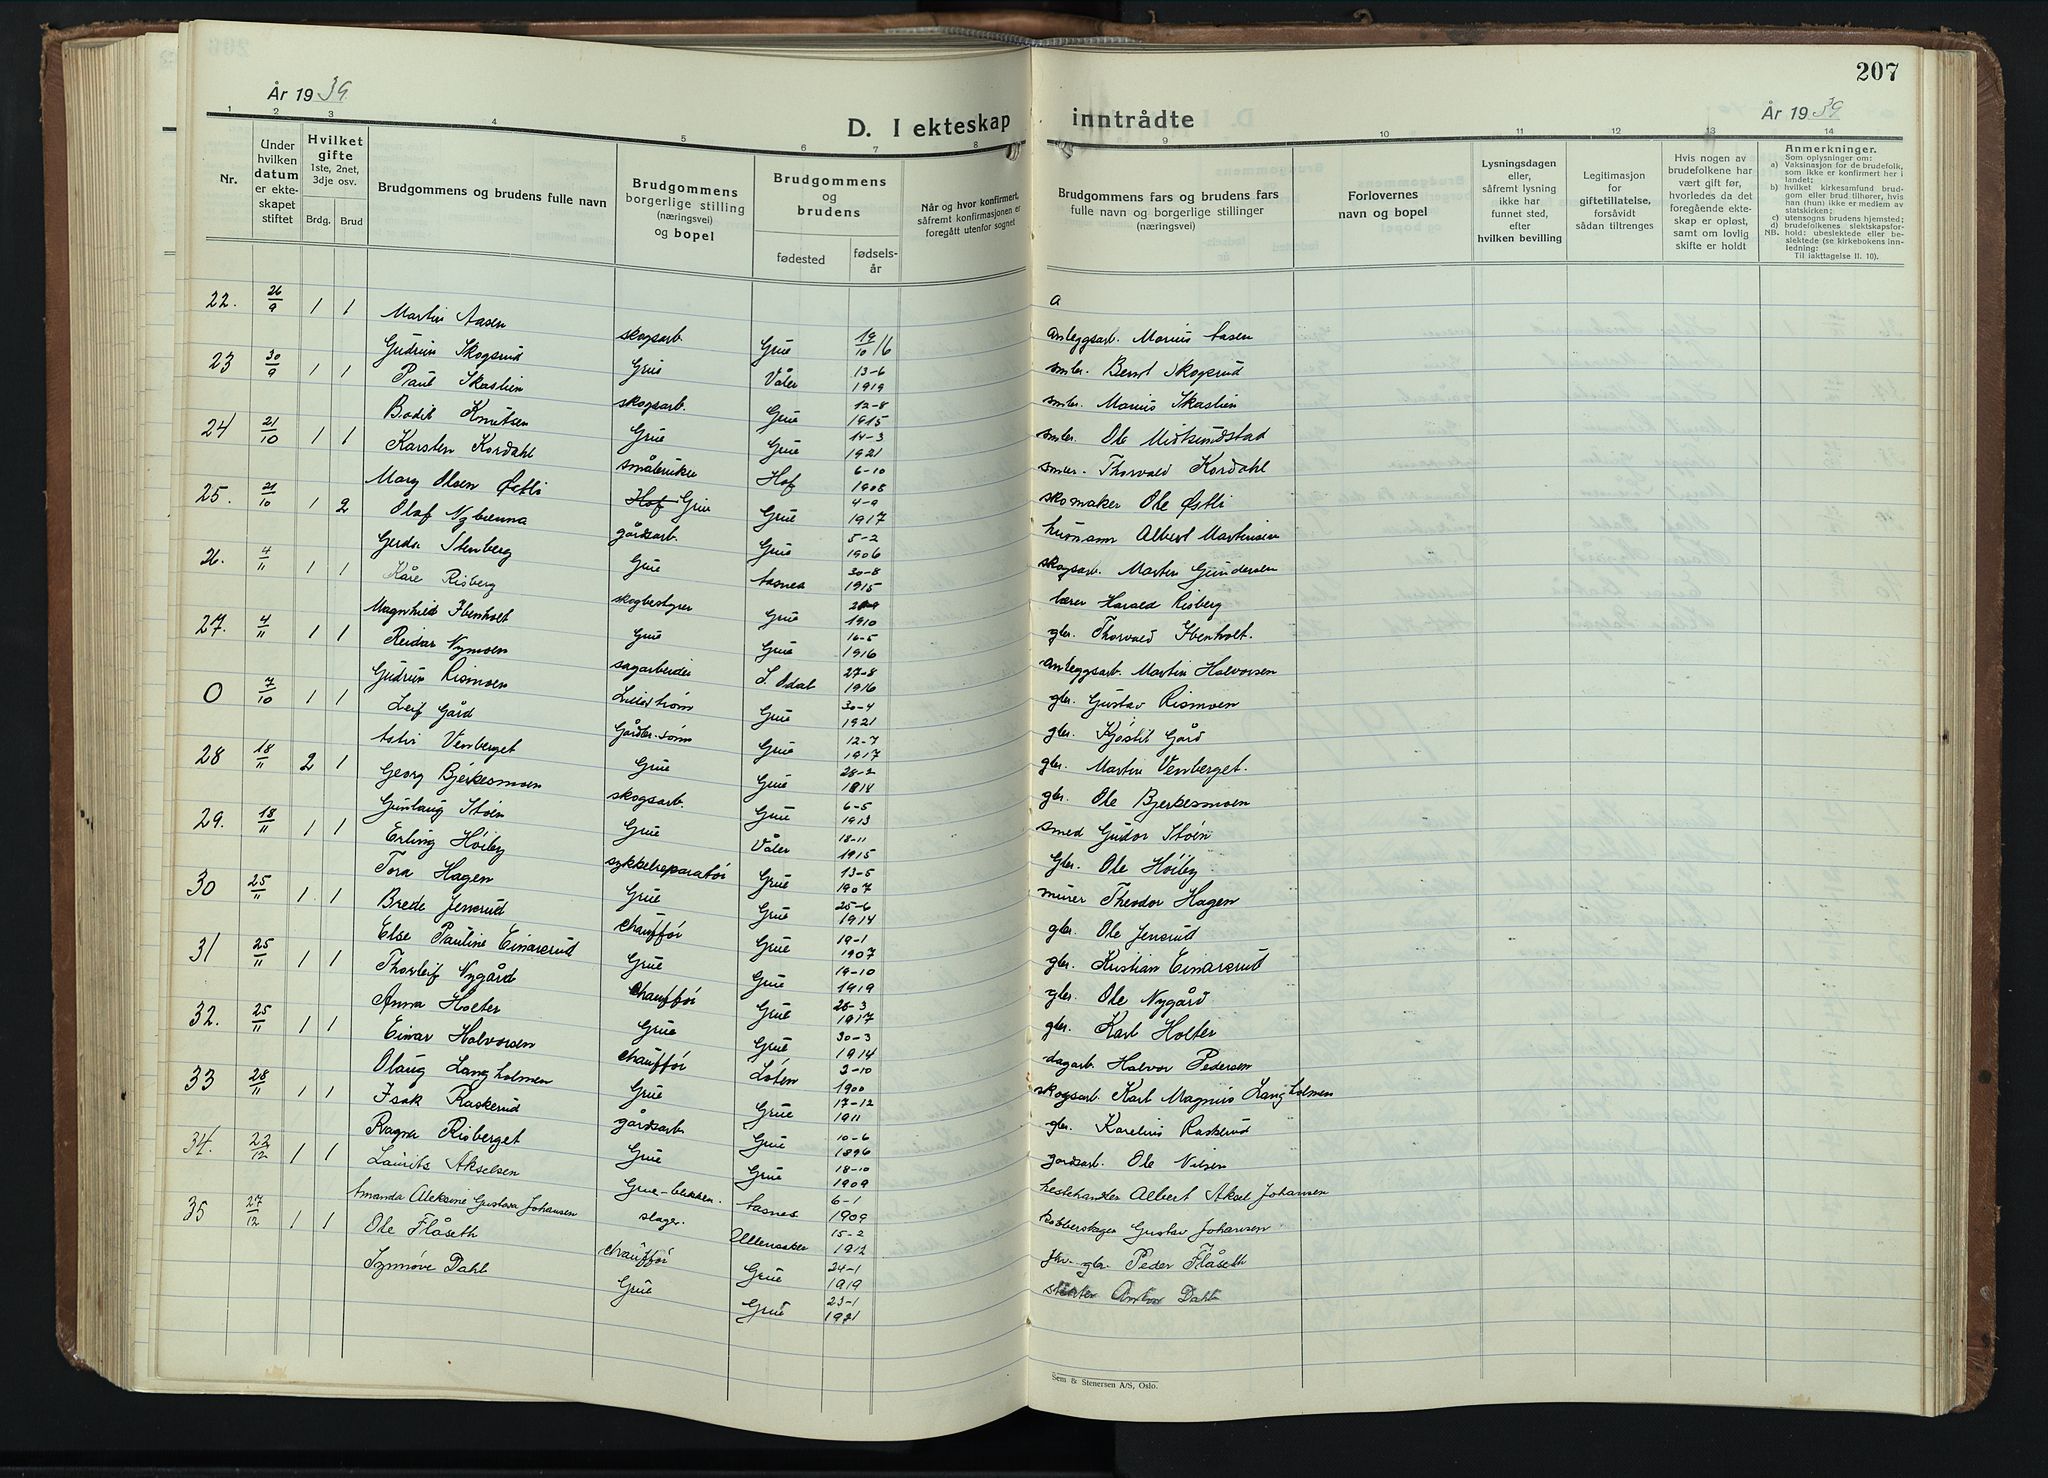 År 1939.
D. I ekteskap
1 2 3 4 5 6 7 8
Nr.
Under hvilken datum er ekteskapet stiftet
Hvilket gifte 1ste, 2net, 3dje osv.
Brdg. Brud
Brudgommens og brudens fulle navn
Brudgommens borgerlige stilling (næringsvei) og bopel
Brudgommens og brudens
fødested fødsels-år
Når og hvor konfirmert, såfremt konfirmasjonen er foregått utenfor sognet
22. 26/9 1 1 Martin Aasen skogsarb. Grue 19/10 16
Gudrun Skogsrud Grue Våler 13-6 1919
23 30/9 1 1 Paul Skaslien skogsarb. Grue 12-8 1915
Bodil Knutsen Grue Grue 14-3 1921
24 21/10 1 1 Karsten Kordahl småbruker Hof 6-10 1908
Mary Olsen Østli Hof Grue Grue 4-9 1917
25. 21/10 1 2 Olaf Nybrenna gårdsarb. Grue 5-2 1906
Gerda Stenberg Grue Aasnes 30-8 1915
26. 4/11 1 1 Kåre Risberg skogbestyrer Grue 1910
Magnhild Ibenholt Grue Grue 16-5 1916
27. 4/11 1 1 Reidar Nymoen sagarbeider S. Odal 27-8 1916
Gudrun Rismoen Lillestrøm Grue 30-4 1921
0 7/10 1 1 Leif Gård Gårdbr.sønn Grue 12-7 1917
Astri Venberget Grue Grue 28-2 1914
28 18/11 2 1 Georg Bjerkesmoen skogsarb. Grue 6-5 1913
Gunlaug Støen Grue Våler 18-11 1915
29. 18/11 1 1 Erling Høiby sykkelreparatør Grue 13-5 1907
Tora Hagen Grue Grue 25-6 1914
30 25/11 1 1 Brede Jensrud chauffør Grue 19-1 1907
Else Pauline Einarsrud Grue Grue 19-10 1919
31 25/11 1 1 Thorleif Nygård chauffør Grue 26-3 1917
Anna Holter Grue Grue 30-3 1914
32. 25/11 1 1 Einar Halvorsen chauffør Løten 2-10 1900
Olaug Langholmen Grue Grue 17-12 1911
33 28/11 1 1 Isak Raskerud gårdsarb. Grue 10-6 1896
Ragna Risberget Grue Grue 18-10 1909
34. 22/12 1 1 Laurits Akselsen Grue-bekken. Aasnes 6-1 1909
Amanda Aleksine Gustava Johansen slager. Ullensaker 15-2 1912
35 27/12 1 1 Ole Flåseth chauffør Grue 24-1 1919
Synnøve Dahl Grue Grue 23-1 1921
207
inntrådte
År 1939
9 10 11 12 13 14
Brudgommens fars og brudens fars fulle navn og borgerlige stillinger (næringsvei)
Forlovernes navn og bopel
Lysningsdagen eller, såfremt lysning ikke har funnet sted, efter hvilken bevilling
Legitimasjon for giftetillatelse, forsåvidt sådan tiltrenges
Hvis nogen av brudefolkene har vært gift før, hvorledes da det foregående ekteskap er opløst, samt om lovlig skifte er holdt
Anmerkninger.
Som oplysninger om:
a) Vaksinasjon for de brudefolk, som ikke er konfirmert her i landet;
b) hvilket kirkesamfund brudgom eller brud tilhører, hvis han (hun) ikke er medlem av statskirken;
c) utensogns brudens hjemsted;
d) brudefolkenes slektskapsforhold: ubeslektede eller beslektede (se kirkebokens innledning:
NB. Til iakttagelse II. 10).
a
anleggsarb. Marius Aasen
smbr. Bernt Skogsrud
smbr. Marius Skaslien
smbr. Ole Midtsundstad
smbr. Thorvald Kordahl
skomaker Ole Østli
husmann Albert Martinsen
skogsarb. Martin Gundersen
lærer Harald Risberg
gbr. Thorvald Ibenholt.
anleggsarb. Martin Halvorsen
gbr. Gustav Rismoen
gbr. Kjøstil Gård
gbr. Martin Venberget.
gbr. Ole Bjerkesmoen
smed Gudor Støen
Gbr. Ole Høiby
murer Theodor Hagen
gbr. Ole Jensrud
gbr. Kristian Einarsrud
gbr. Ole Nygård
gbr. Karl Holter
dagarb. Halvor Pedersen
skogsarb. Karl Magnus Langholmen
gbr. Karelius Raskerud
gårdsarb. Ole Nilsen
hestehandler Albert Aksel Johansen
kobberslager Gustav Johansen
fhv. gbr. Peder Flåseth
Anton Dahl
Sem & Stenersen A/S, Oslo.